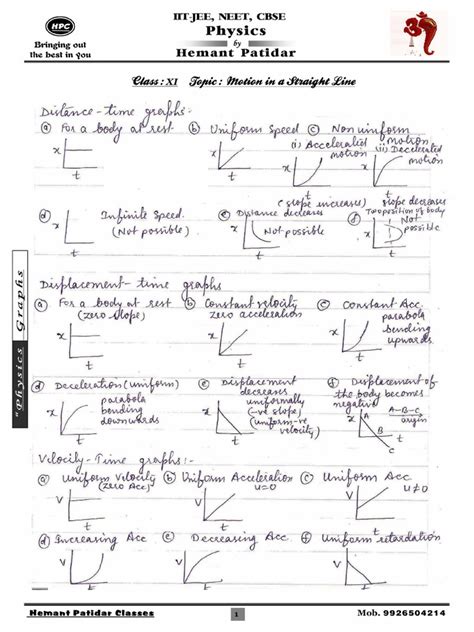 HPC
Bringing out
the best in you
IIT-JEE, NEET, CBSE
Physics
by
Hemant Patidar
Class : XI Topic : Motion in a Straight Line
Distance-time graphs:-
(a) For a body at rest (b) Uniform Speed (c) Non uniform motion
(i) Accelerated motion (ii) Decelerated motion
x t
(slope increases) (slope decreases)
(d) Infinite Speed. (Not possible)
(e) Distance decreases Not possible
(f) Two position of body Not possible
x t
Displacement-time graphs
(a) For a body at rest (zero slope)
(b) Constant velocity zero acceleration
(c) Constant Acc. parabola bending upwards
x t
(d) Deceleration (uniform) parabola bending downwards
(e) Displacement decreases uniformally (-ve slope) (uniform-ve velocity)
(f) Displacement of the body becomes negative
A-B-C origin
A
B
C
x t
Velocity-Time graphs:-
(a) Uniform Velocity (zero Acc)
(b) Uniform Acceleration u=0
(c) Uniform Acc u≠0
V t
(d) Increasing Acc (e) Decreasing Acc. (f) Uniform retardation
V t
"Physics Graphs
Hemant Patidar Classes
1
Mob. 9926504214